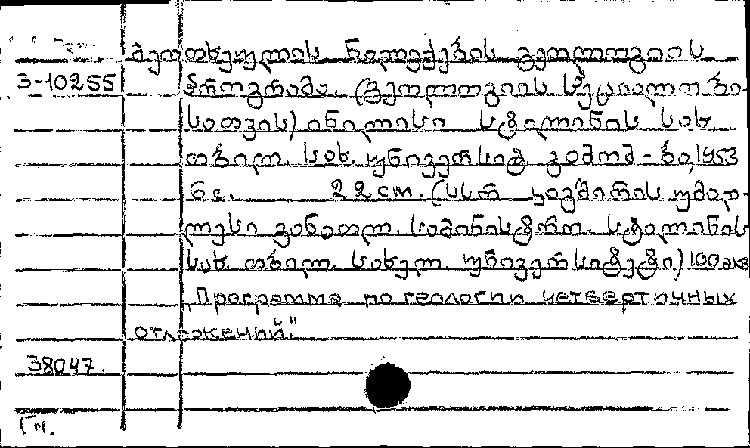 მეოთხეულის ნალექების გეოლოგიის
3-10255 პროგრამა. (გეოლოგიის სპეციალობი-
სათვის) თბილისი სტალინის სახ.
თბილ. სახ. უნივერსიტ. გამომ-ბა, 1953
22 см. (სსრ კავშირის უმაღ-
ლესი განათლ. სამინისტრო. სტალინის
სახ. თბილ. სახელ. უნივერსიტეტი) 100 экз
„Программа по геологии четвертичных
отложений."
38047.